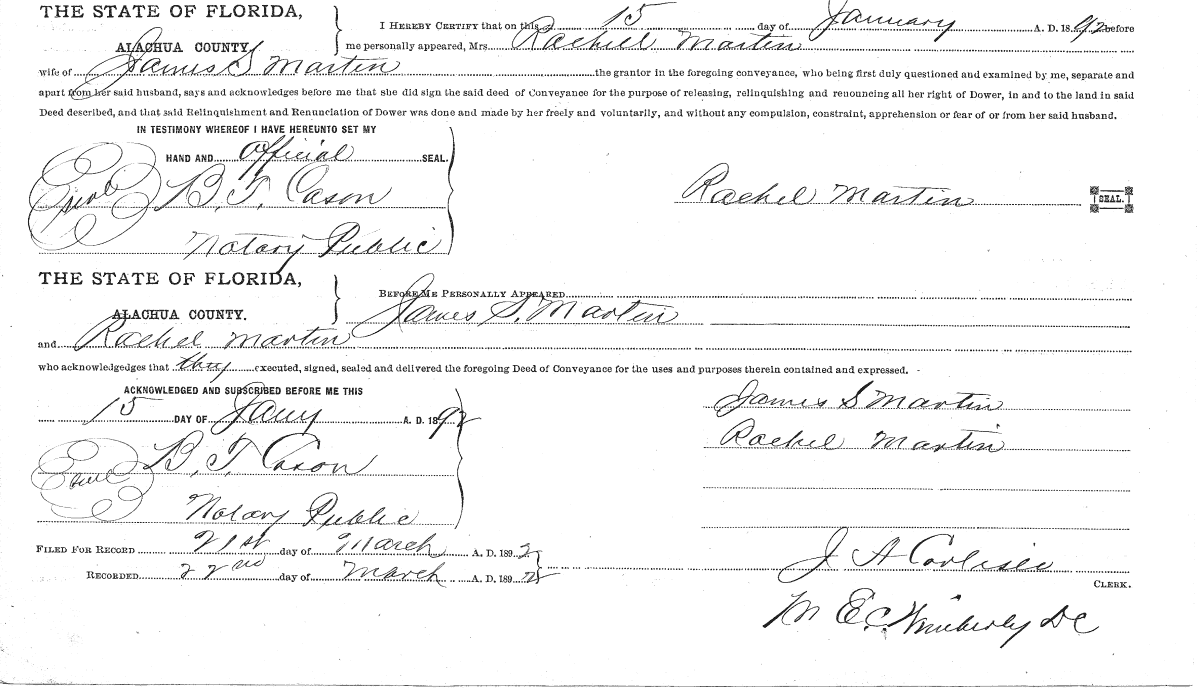 THE STATE OF FLORIDA,
ALACHUA COUNTY
I HEREBY CERTIFY that on this 15 day of January A. D. 1892 before
me personally appeared, Mrs. Rachel Martin
wife of James S Martin the grantor in the foregoing conveyance, who being first duly questioned and examined by me, separate and
apart from her said husband, says and acknowledges before me that she did sign the said deed of Conveyance for the purpose of releasing, relinquishing and renouncing all her right of Dower, in and to the land in said
Deed described, and that said Relinquishment and Renunciation of Dower was done and made by her freely and voluntarily, and without any compulsion, constraint, apprehension or fear of or from her said husband.
IN TESTIMONY WHEREOF I HAVE HEREUNTO SET MY
HAND AND Official SEAL.
B. T. Cason
Notary Public
Rachel Martin SEAL.
THE STATE OF FLORIDA,
ALACHUA COUNTY.
BEFORE ME PERSONALLY APPEARED
James S. Martin
and Rachel Martin
who acknowledgedges that they executed, signed, sealed and delivered the foregoing Deed of Conveyance for the uses and purposes therein contained and expressed.
ACKNOWLEDGED AND SUBSCRIBED BEFORE ME THIS
15 DAY OF Jany A. D. 1892
B. T. Cason
Notary Public
James S Martin
Rachel Martin
FILED FOR RECORD 21st day of March A. D. 1892
RECORDED 22nd day of March A. D. 1892
J A Carlisle
CLERK.
E. C. Wimberly DC